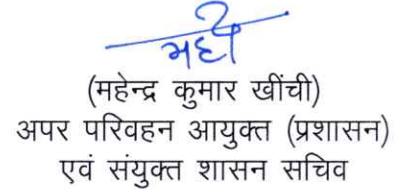 (महेन्द्र कुमार खींची)
अपर परिवहन आयुक्त (प्रशासन)
एवं संयुक्त शासन सचिव